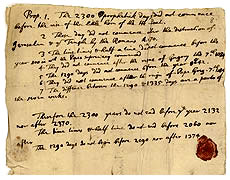 Prop. 1. The 2300 prophetick days did not commence
before the rise of the little horn of the He Goat.
2 Those day did not commence after the destruction of
Jerusalem & ye Temple by the Romans
3 The time times & half a time did not commence before the
year 800 in wch the Popes supremacy commenced
4 They did not commence after the reign of Gregory the 7th
5 The 1290 days did not commence before the year 842.
6 They did not commence after the reign of Pope Greg. 7th
7 The difference between the 1290 & 1335 days are a parts of
the seven weeks.
Therefore the 2300 years do not end before ye year 2132
nor after 2370.
The time times & half time do not end before 2060 nor
after
The 1290 days do not begin before 2090 nor after 1374